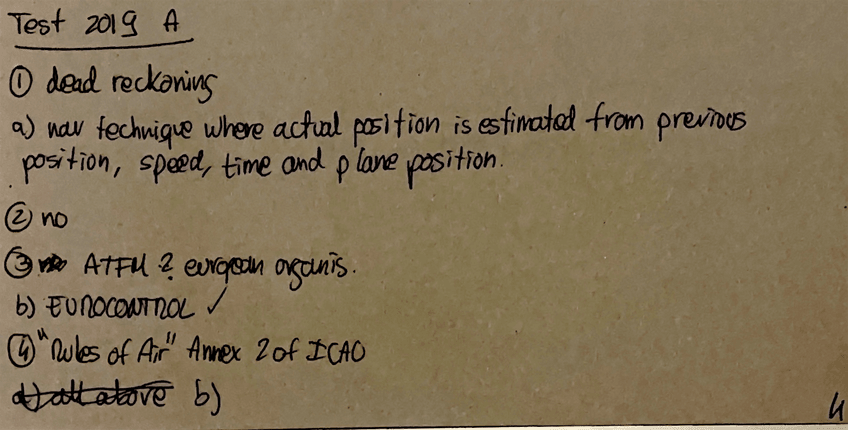 Test 2019 A
① dead reckoning
a) nav technique where actual position is estimated from previous
position, speed, time and plane position.
② no
③ ATFM ? european organis.
b) EUROCONTROL ✓
④ "Rules of Air" Annex 2 of ICAO
d) all above b)
4